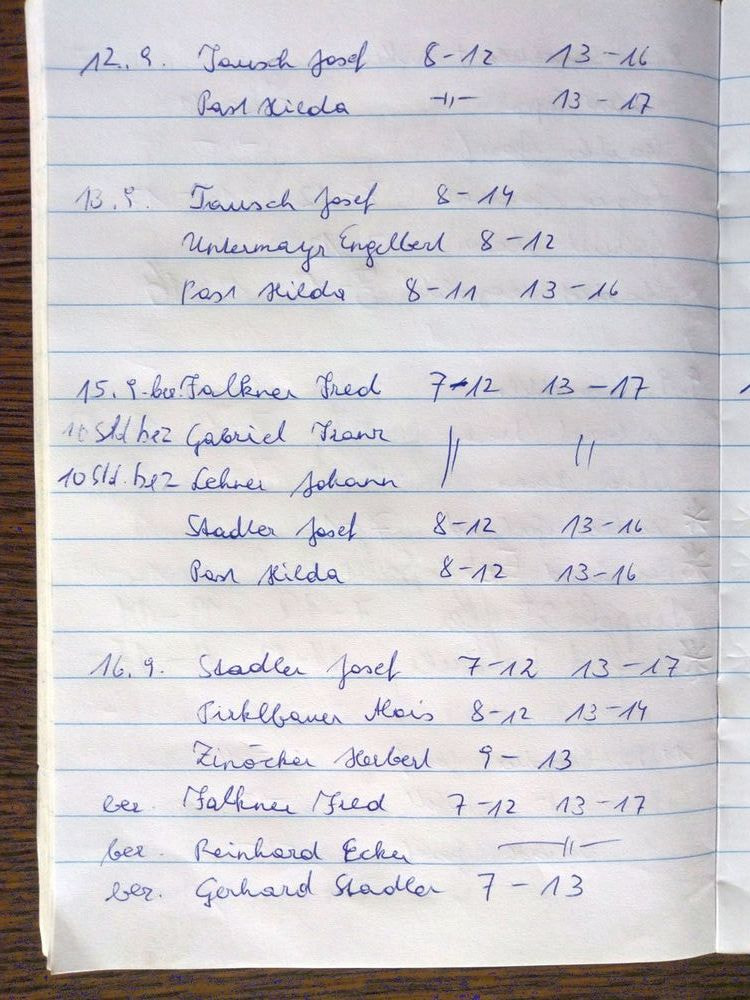 12. 9. Tausch Josef 8-12 13-16
Past Hilda -"- 13-17
13. 9. Tausch Josef 8-14
Untermayr Engelbert 8-12
Past Hilda 8-11 13-16
15. 9. ber. Falkner Fred 7-12 13-17
10 Std bez Gabriel Franz " "
10 Std. bez Lehner Johann
Stadler Josef 8-12 13-16
Past Hilda 8-12 13-16
16. 9. Stadler Josef 7-12 13-17
Pirklbauer Alois 8-12 13-14
Zinöcker Herbert 9-13
ber. Falkner Fred 7-12 13-17
ber. Reinhard Ecker -"-
ber. Gerhard Stadler 7-13